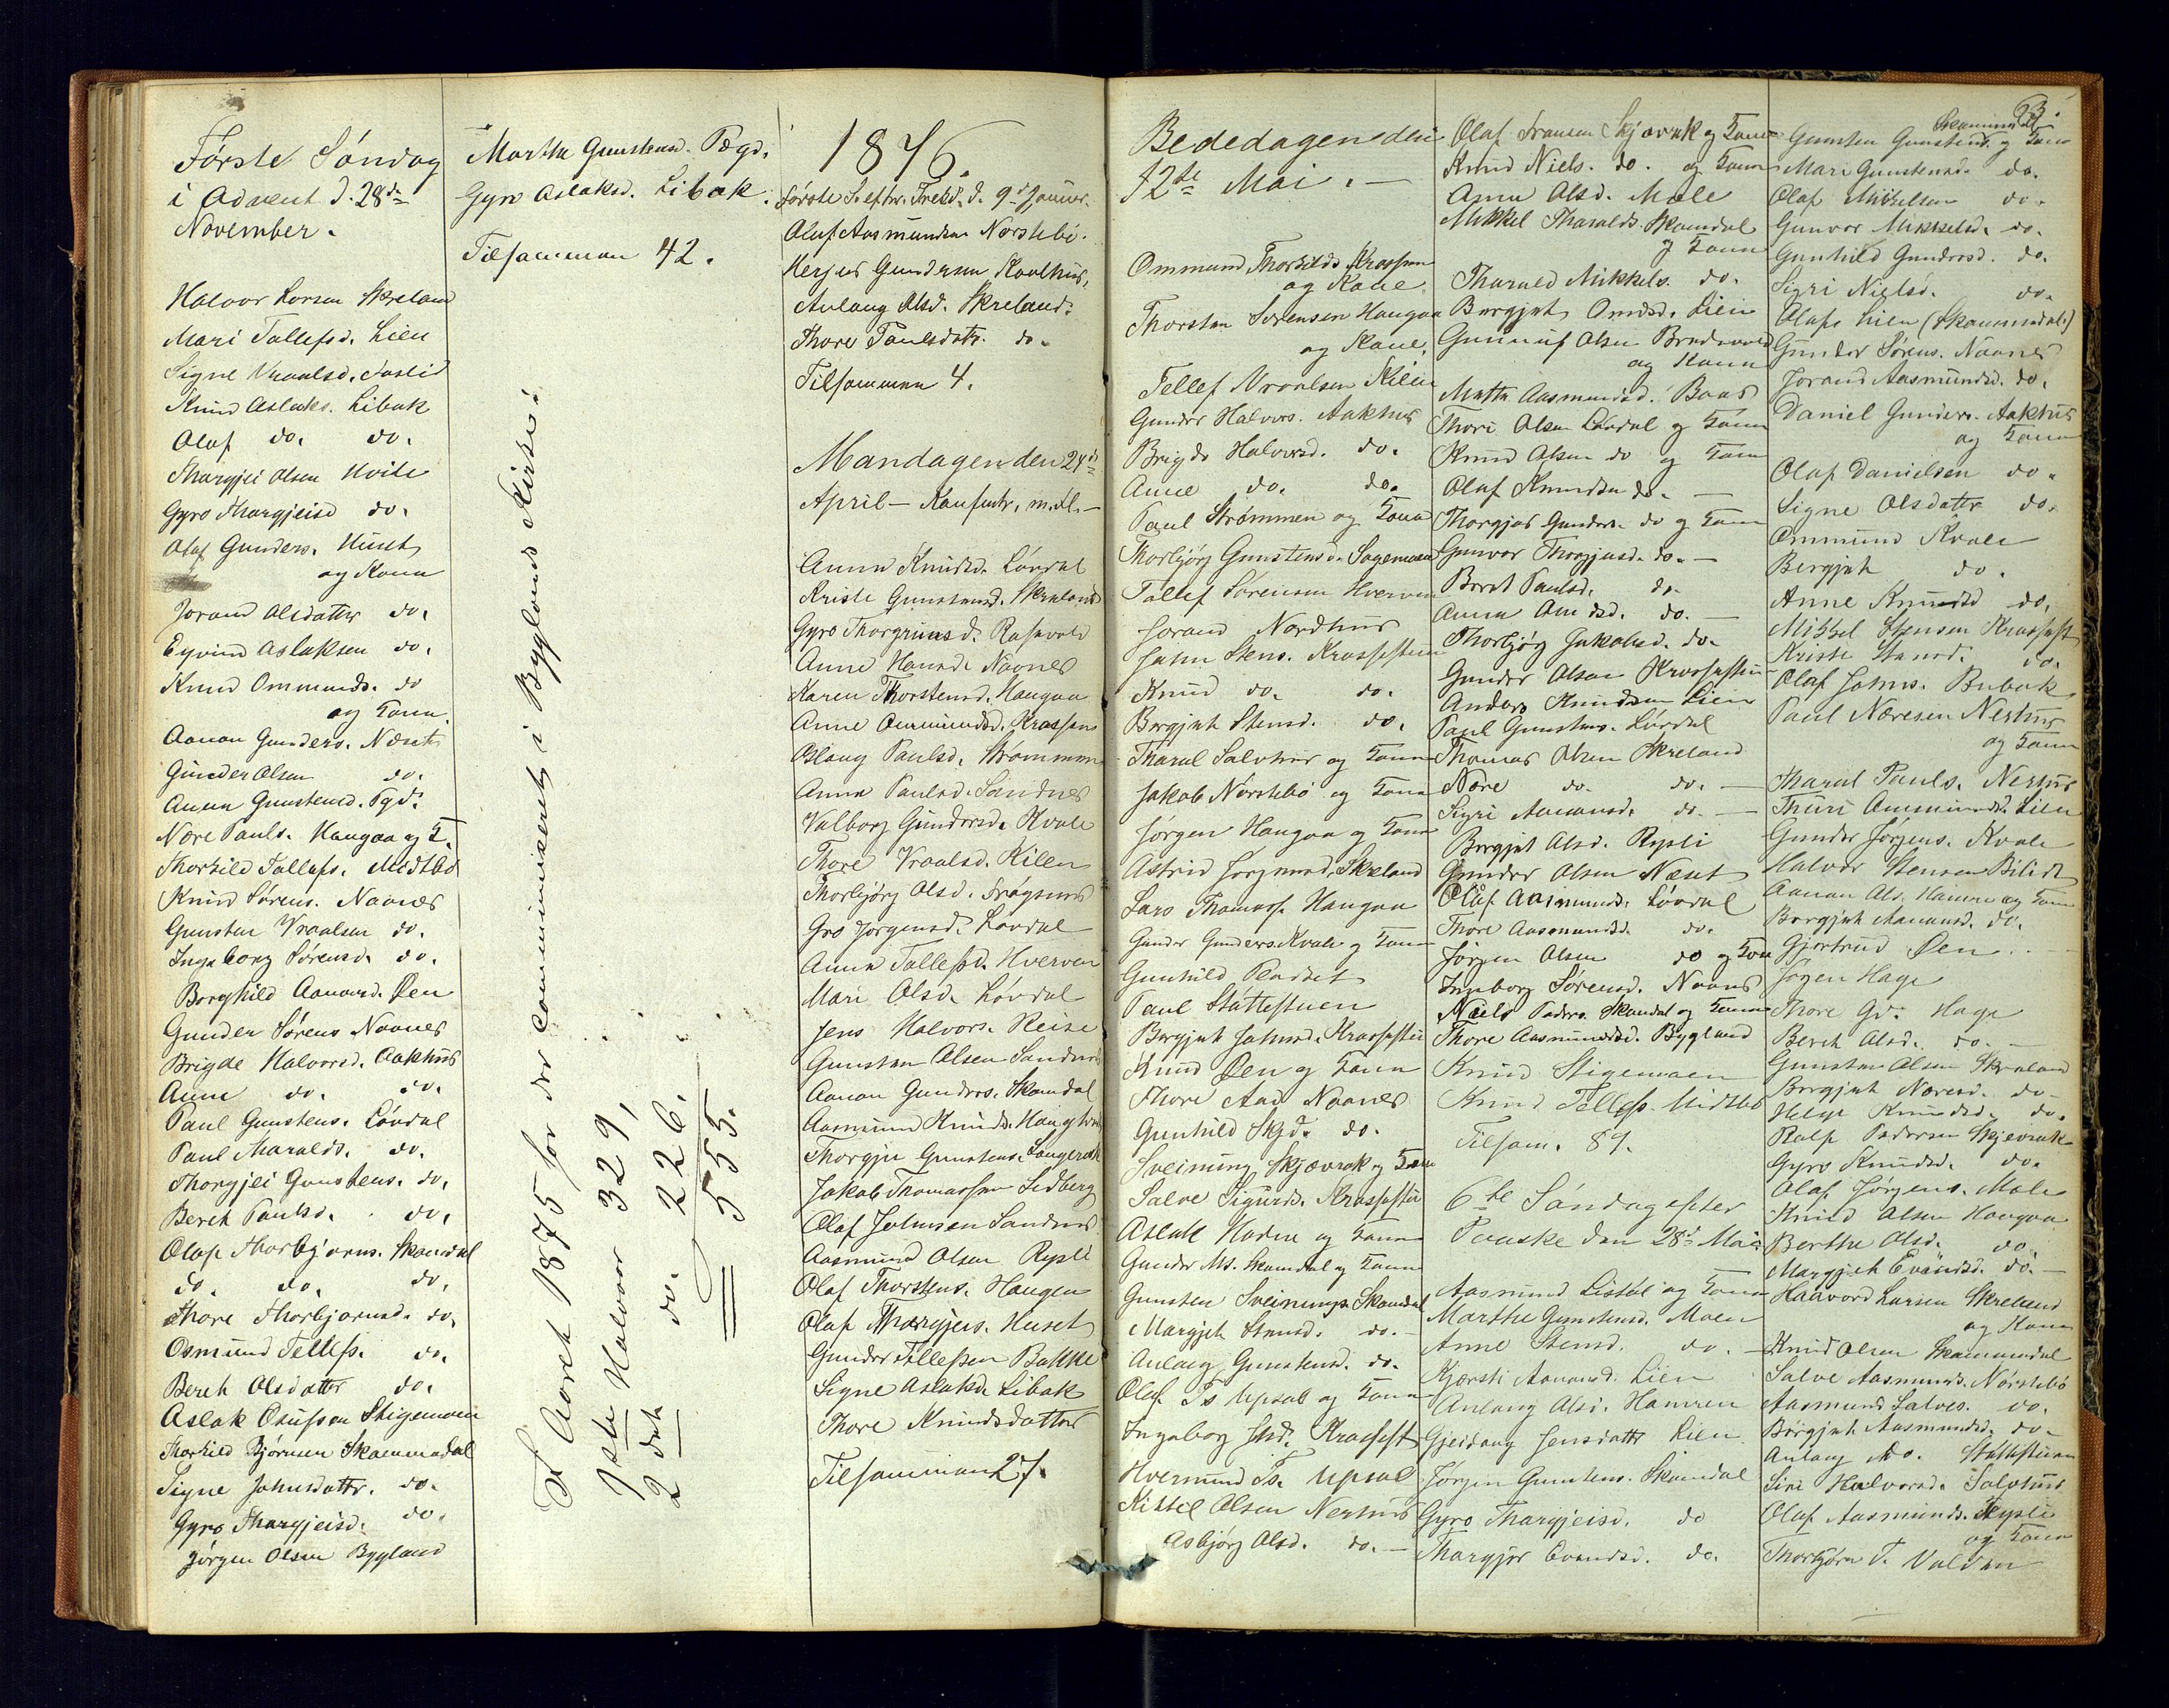 Første Söndag
i Advent d. 28de
November.
Halvor Larsen Skreland
Mari Tallefsd. Lien
Signe Vraalsd.
Knud Aslaks. Libak
Olaf do. do.
Thorgjei Olsen
Gyro Thorgjeisd do.
Olaf Gunders. Huset
og Kone
Jorand Olsdatter do.
Eyvind Aslaksen do.
Knud Ommunds. do
og Kone
Aanon Gunders. Næset
Gunder Olsen do.
Anne Gunstensd. Pgd.
Nære Pauls. Haugaa og K.
Thorkild Tallefs. Midtbø
Knud Sørens. Naanes
Gunsten Vraalsen do.
Ingeborg Sørensd. do.
Borghild Aanonsd. Øen
Gunder Sørens Naanes
Brigde Halvorsd. Aakhus
Anne do. do.
Paul Gunstens. Løvdal
Paul Tharalds. do.
Thorgjei Gunstens. do.
Bereth Paulsd. do.
Olaf Thorbjørns. Skamdal
do. do. do.
Thore Thorbjørnsd. do.
Osmund Tellefs. do.
Bereth Olsdatter do.
Aslak Olsen Stigemoen
Thorkild Bjørnsen Skammedal
Signe Johnsdatter. do.
Gyro Thorgjeisd. do.
Jørgen Olsen Bygland
Marthe Gunstensd. Pgd.
Gyro Aslaksd. Libak.
Tilsammen 42.
I Aaret 1875 har der communiceret i Byglands Kirke:
1ste Halvaar 329,
2det do. 226.
555.
1876.
Første S. efter. Trekd. d. 9d Januar.
Oluf Aasmundsen Nørstebø.
Kerjus Gundersen Kaalhus,
Anlaug Olsd. Skreland.
Thore Paulsdatr. do.
Tilsammen 4.
Mandagen den 24d
April — Konfentr. m. fl. —
Anna Knudsd. Løvdal
Kristi Gunstensd. Skreland
Gyro Thorgrimsd.
Anne Hansd. Naanes
Karen Thorstensd. Haugaa
Anne Ommundsd.
Aslaug Paulsd. Strømmen
Anne Paulsd. Sandnes
Valborg Gundersd. Kvale
Thore Vraalsd. Kilen
Thorbjørg Olsd.
Gro Jørgensd. Løvdal
Anne Tallefsd. Hverven
Mari Olsd. Løvdal
Jens Halvors. Reise
Gunsten Olsen Sandnes
Aanon Gunders. Skamdal
Aasmund Knuds.
Thorgjei Gunstens. Langerak
Jakob Thomassen Sedberg
Olaf Johnsen Sandnes
Aasmund Olsen Rysli
Olaf Thorstens. Haugen
Olaf Thorgjeis. Huset
Gunder Tellefsen Bakke
Signe Aslaksd. Libak
Thore Knudsdatter
Tilsammen 27.
Bededagen den
12te Mai. —
Ommund Thorkilds
og Kone.
Thorsten Sørensen Haugaa
og Kone.
Tellef Vraalsen Kilen
Gunder Halvors. Aakhus
Brigde Halvorsd. do.
Anne do. do.
Paul Strømmen og Kone
Thorbjørg Gunstensd.
Tallef Sørensen Hverven
Jorand Nordhus
John Stens.
Knud do. do.
Bergjith Stensd. do.
Tharal Salvhus og Kone
Jakob Nørstebø og Kone
Jørgen Haugaa og Kone
Astrid Jorgensd. Skreland
Lars Thomass. Haugaa
Gunder Gunders. Kvale og Kone
Gunhild
Paul Støttestuen
Bergjith Johnsd.
Knud Øen og Kone
Thore Aad Naanes
Gunhild do.
Sveinung Skjævrak og Kone
Salve Sigurds.
Aslak Hodne og Kone
Gunder Ms. Skamdal og Kone
Gunsten Sveinungs. Skamdal
Margjith Stensd. do.
Anlaug Gunstensd. do.
Olaf Ts Upsal og Kone
Ingeborg
Hvermund Ts. Upsal
Kittel Olsen Nesthus
Asbjørg Olsd. do. —
Olaf Fransen Skjævrak og Kone
Knud Niels. do. og Kone
Anne Olsd. Mole
Mikkel Tharalds. Skamdal
og Kone
Tharald Mikkels. do.
Bergjith Omdsd. Lien
Gunnuf Olsen
og Kone
Mattha Aasmundsd. Baas
Thore Olsen Løvdal og Kone
Knud Olsen do og Kone
Olaf Knudsen do. —
Thorgjus Gunders. do og Kone
Gunvor Thorgjusd. do. —
Beret Paulsd. do.
Anne do. —
Thorbjørg Jakobsd. do.
Gunder Olsen
Anders Knudsen Lien
Paul Gunstens. Løvdal
Thomas Olsen Skreland
Nære do. do. —
Sigri Aanonsd. do. —
Bergjit Olsd. Rysli
Gunder Olsen Næset
Olaf Aasmunds. Løvdal
Thore Aasmundsd. do.
Jørgen Olsen do og Kone
Ingeborg Sørensd. Naanes
Niels Peders. Skamdal og Kone
Thore Aasmundsd. Bygland
Knud Stigemoen
Knud Tellefs. Midtbø
Tilsam. 87.
6te Søndag efter
Paaske den 28d Mai
Aasmund Listøl og Kone
Marthe Gunstensd. Moen
Anne Stensd. do. —
Kjersti Aanonsd. Lien
Anlaug Alsd. Hamren
Gjeidaug Jensdattr Lien
Jørgen Gunstens. Skamdal
Gyro Thorgjeisd. do
Thorgjer Evendsd. do.
63.
Skammedal
Gunsten Gunstens. og Kone
Mari Gunstensd. do.
Olaf Mikkelsen do.
Gunvor Mikkelsd. do.
Gunhild Gundersd. do.
Sigri Nielsd. do.
Olafs Lien (Skammedal)
Gunder Sørens. Naanes
Jorand Aasmundsd. do.
Daniel Gunders. Aakhus
og Kone
Olaf Danielsen do.
Signe Olsdatter do.
Ommund Kvale
Bergjith do.
Anne Knudsd do.
Mikkel Stensen
Kristi Stensd. do.
Olaf Johns. Bubak
Paul Næresen Nesthus
og Kone
Tharal Pauls. Nesthus
Thuri Ommundsd. Lien
Gunder Jørgens. Kvale
Halvor Stensen
Aanon Als. Hamre og Kone
Bergjith Aanonsd. do.
Gjertrud Øen
Jørgen Hage
Thore Gd. Hage
Bereth Alsd. do. —
Gunsten Olsen Skreland
Bergjith Næresd. do
Helge Knudsd. do.
Rolf Pedersen Skjevrak
Gyro Knudsd. do.
Olaf Jørgens. Mole
Knud Olsen Haugaa
Berthe Olsd. do.
Margjith Evandsd. do. —
Haavord Larsen Skreland
og Kone
Knud Olsen Skammedal
Salve Aasmunds. Nørstebø
Aasmund Salves. do.
Børgjith Aasmundsd. do.
Anlaug do. Støttestuen
Siri Halvorsd. Salvhus
Olaf Aasmunds. Rysli
og Kone
Thorbjørn T. Valden